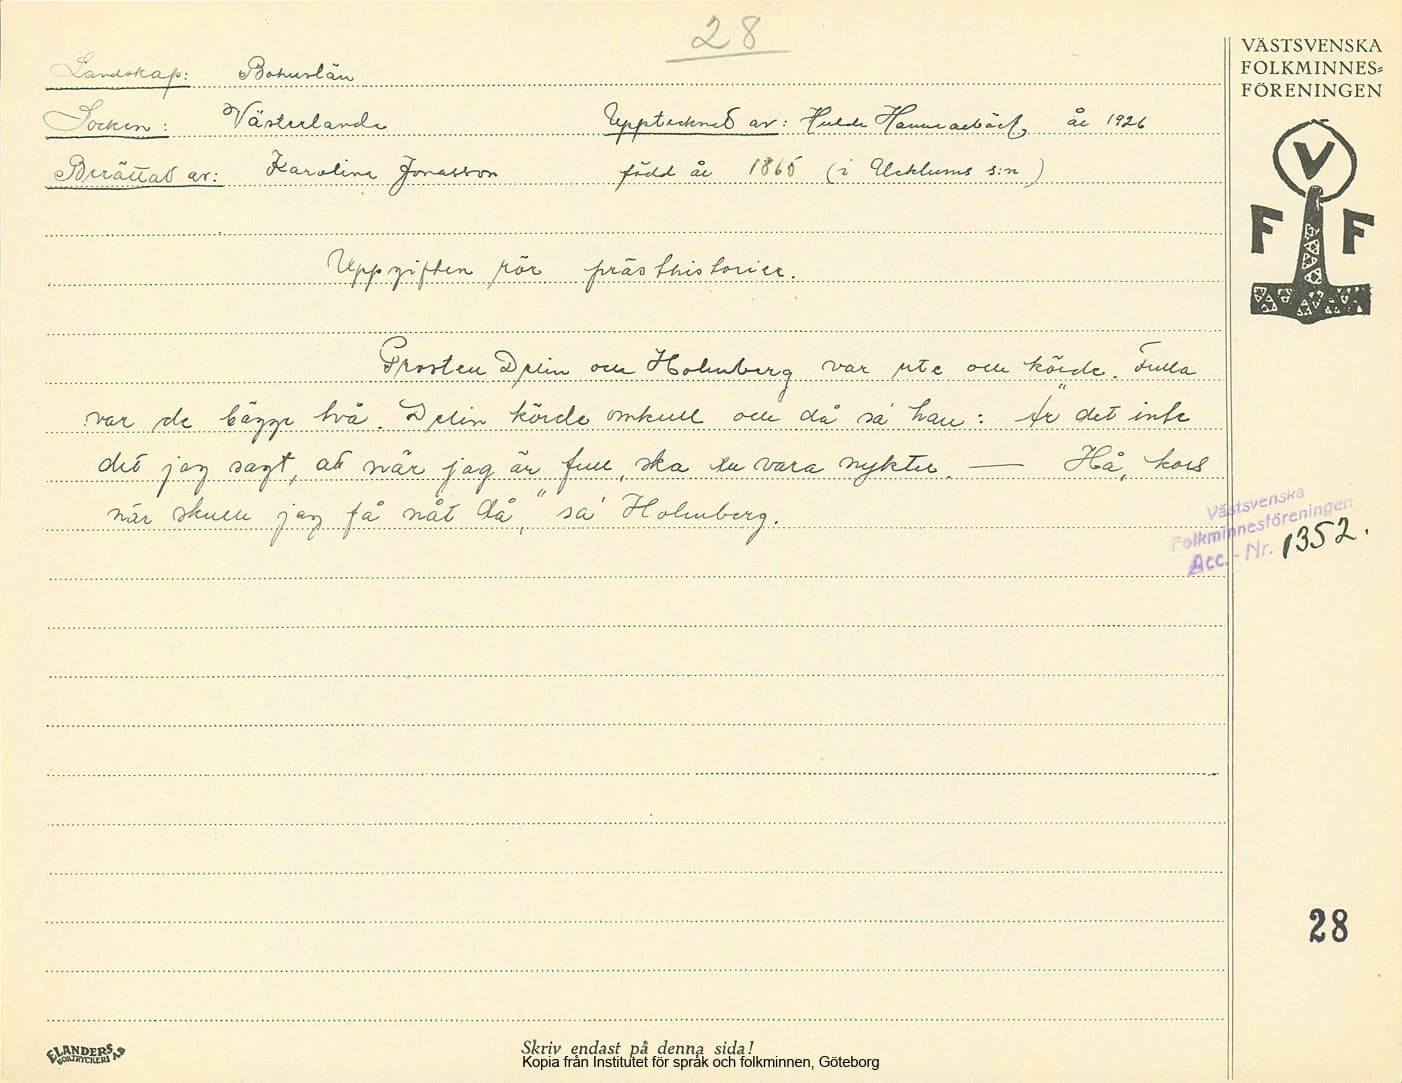 28
VÄSTSVENSKA
FOLKMINNES=
FÖRENINGEN
Landskap: Bohuslän
Socken: Västerlanda Upptecknad av: Hulda Hammarbäck år 1926
Berättad av: Karolina Jonasson född år 1865 (i Ucklums s:n)
V
F F
Uppgiften rör prästhistorier.
Prosten Delin och Holmberg var ute och körde. Fulla
var de bägge två. Delin körde omkull och då sa' han: "Är det inte
det jag sagt, att när jag är full, ska du vara nykter. — Hå, kors
när skulle jag få nåt då," sa' Holmberg.
Västsvenska
Folkminnesföreningen
Acc.-Nr. 1352.
28
ELANDERS
BOKTRYCKERI AB
Skriv endast på denna sida!
Kopia från Institutet för språk och folkminnen, Göteborg